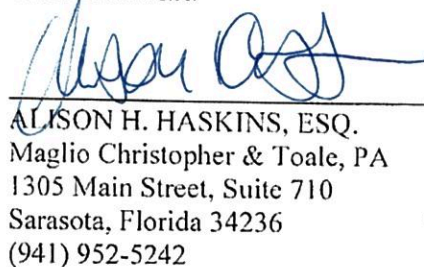 ALISON H. HASKINS, ESQ.
Maglio Christopher & Toale, PA
1305 Main Street, Suite 710
Sarasota, Florida 34236
(941) 952-5242